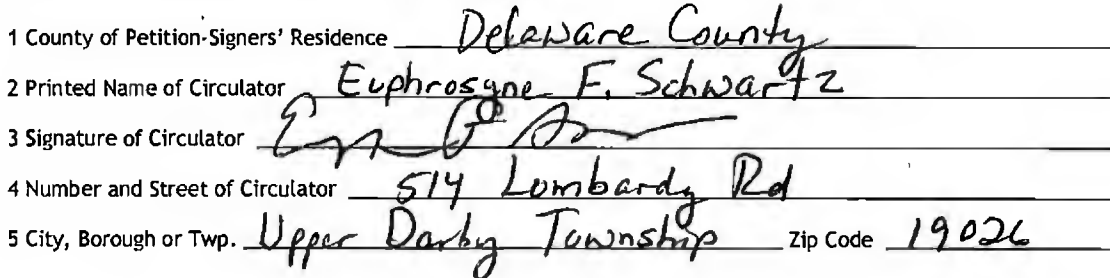 1 County of Petition-Signers' Residence Delaware County
2 Printed Name of Circulator Euphrosyne F. Schwartz
3 Signature of Circulator
4 Number and Street of Circulator 514 Lombardy Rd
5 City, Borough or Twp. Upper Darby Township Zip Code 19026